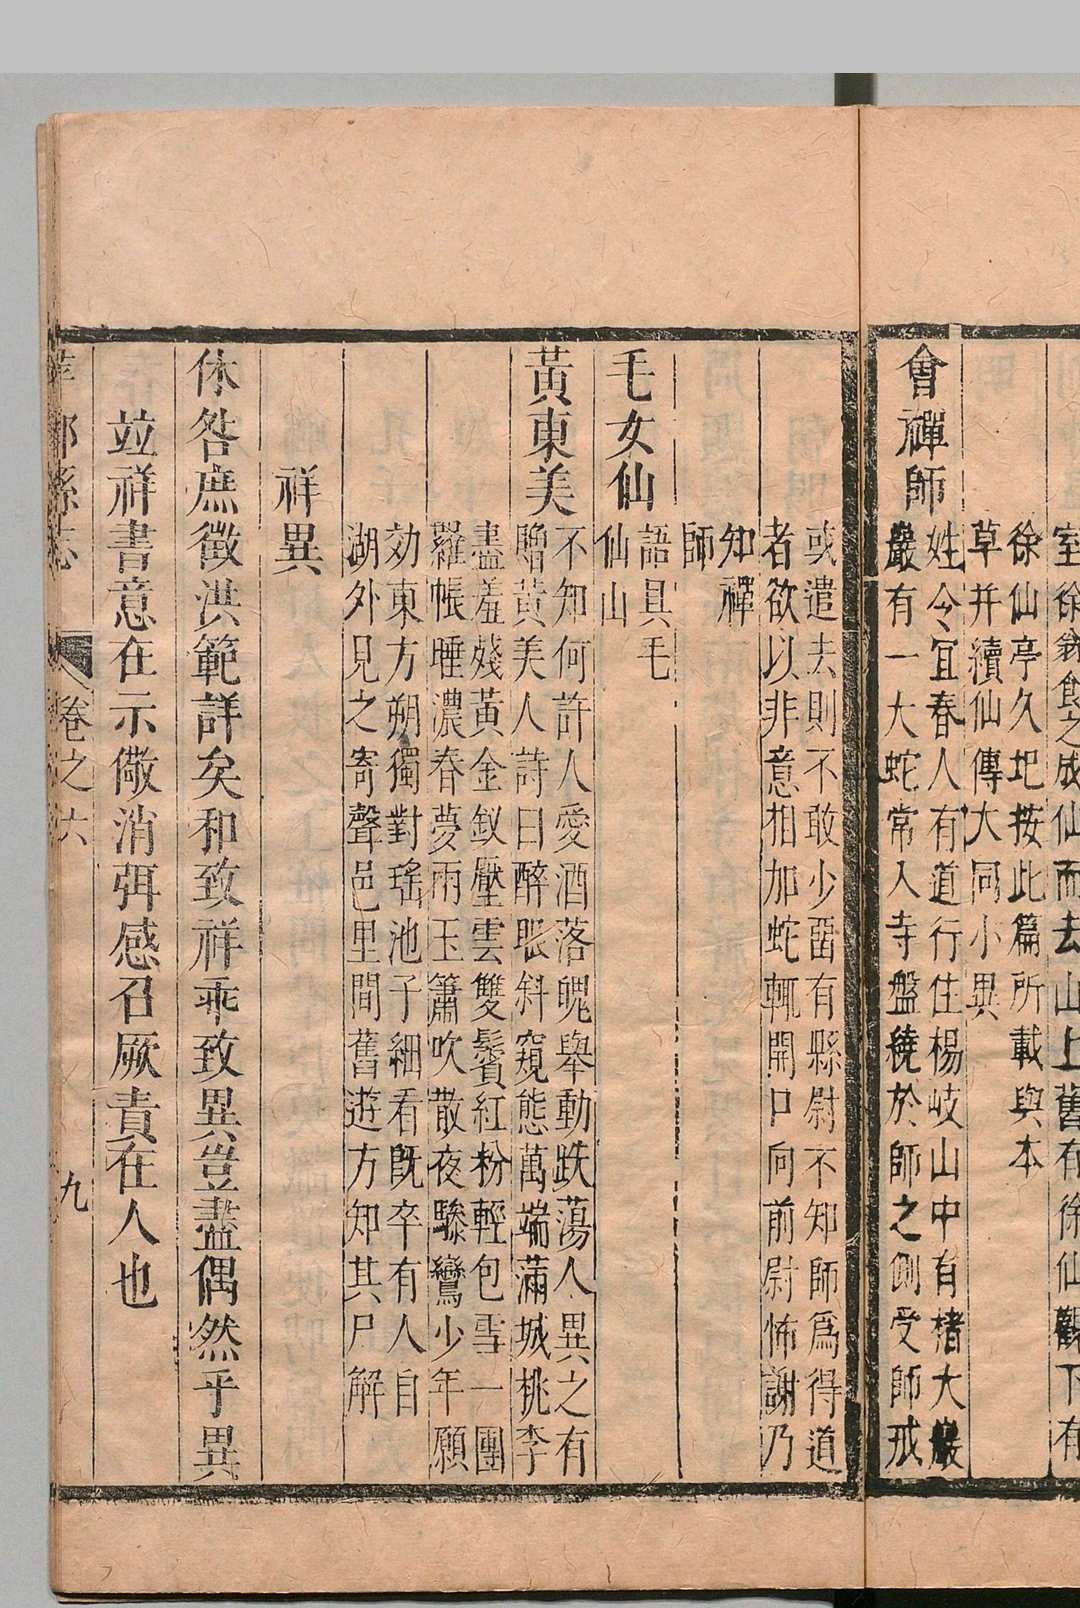 室徐 食之成仙而去山上舊有徐仙觀下有
徐仙亭久圯按此篇所載與本
草并續仙傳大同小異
會禪師
姓令宜春人有道行住楊岐山中有楮大巖
巖有一大蛇常入寺盤繞於師之側受師戒
或遣去則不敢少畱有縣尉不知師爲得道
者欲以非意相加蛇輒開口向前尉怖謝乃
知禪
師
毛女仙
語具毛
仙山
黃東美
不知何許人愛酒落魄舉動跌蕩人異之有
贈黃美人詩曰醉眼斜窺態萬端滿城桃李
盡羞殘黃金釵壓雲雙鬢紅粉輕包雪一團
羅帳睡濃春夢雨玉簫吹散夜驂鸞少年願
効東方朔獨對瑤池子細看旣卒有人自
湖外見之寄聲邑里間舊遊方知其尸解
祥異
休咎庶徵洪範詳矣和致祥乖致異豈盡偶然乎異
竝祥書意在示儆消弭感召厥責在人也
萍鄉縣志
卷之六
九